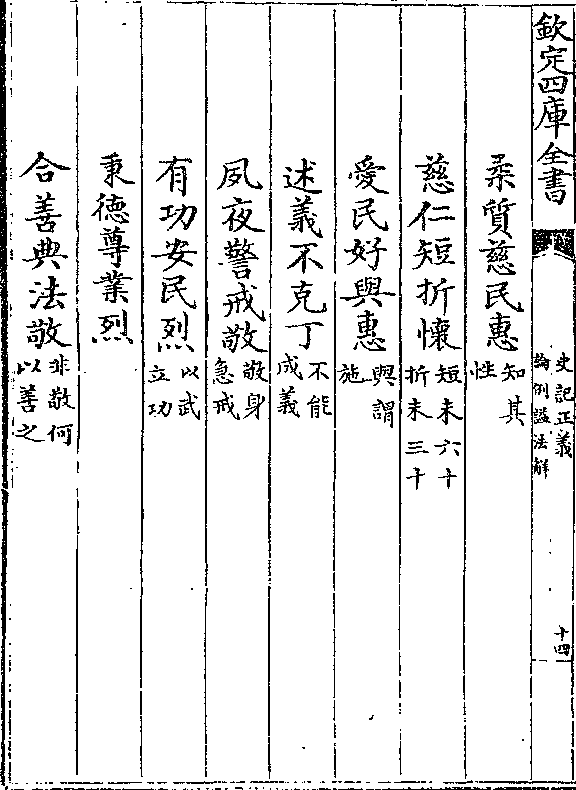 欽定四庫全書
史記正義
論例謚法解
十四
柔質慈民惠知其性
慈仁短折懷短未六十折未三十
愛民好與惠與謂施
述義不克丁不能成義
夙夜警戒敬敬身急戒
有功安民烈以武立功
秉德尊業烈
合善典法敬非敬何以善之